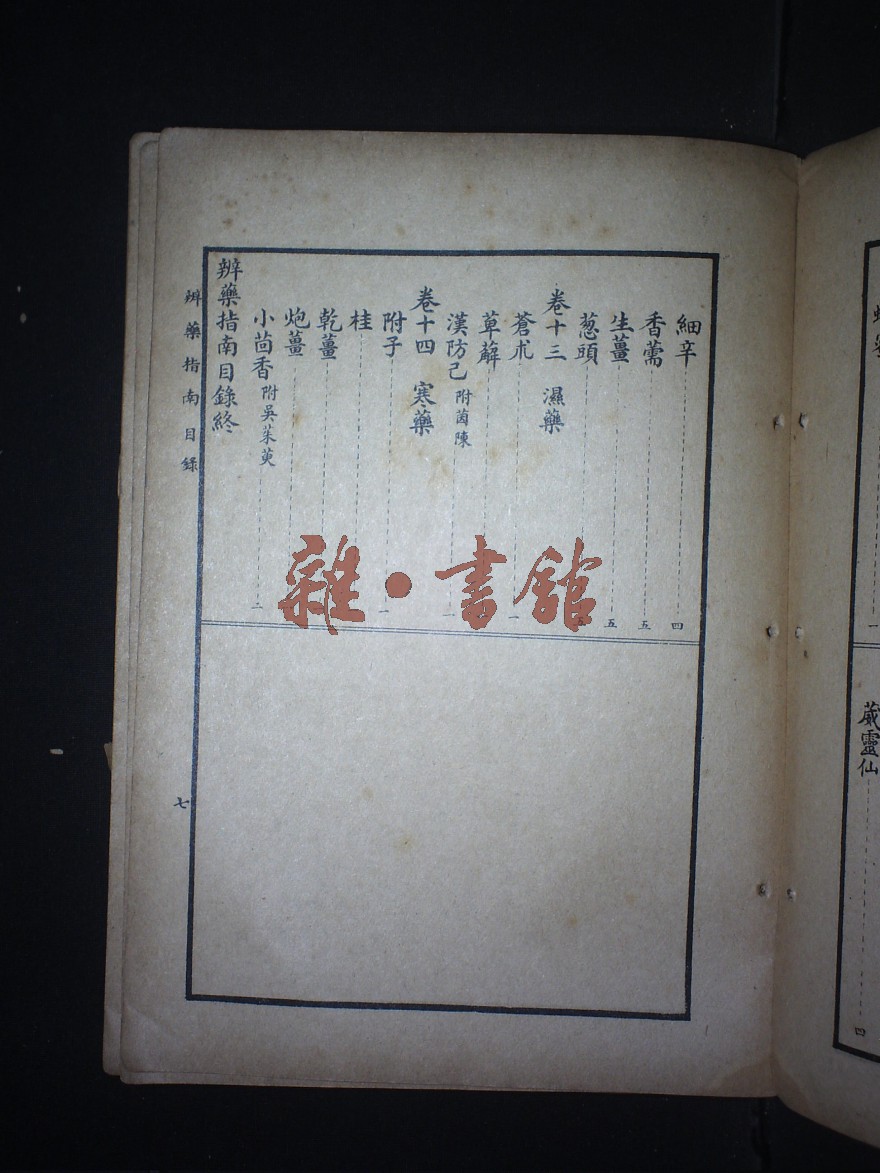 細辛 四
香薷 五
生薑 五
葱頭 五
卷十三 濕藥
蒼朮 一
萆薢
漢防己 附茵陳 一
卷十四 寒藥
附子 一
桂
乾薑
炮薑
小茴香 附吳茱萸 二
辨藥指南目錄終
辨藥指南目錄
七
雜·書館
一
葳靈仙 四